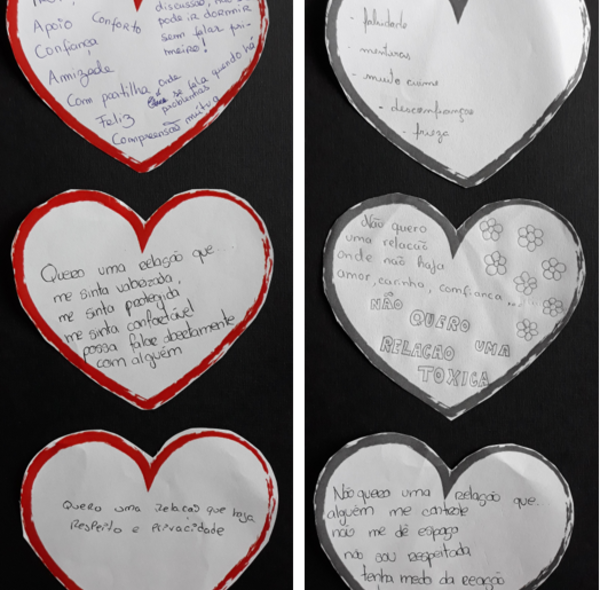 Apoio Conforto
Confiança
Amizade
discussão, não
pode ir dormir
sem falar pri-
meiro!
Com partilha onde
se fala quando há
problemas
Feliz
Compreensão mútua
Quero uma relação que...
me sinta valorizada,
me sinta protegida
me sinta confortável
possa falar abertamente
com alguém
Quero uma relacao que haja
Respeito e Privacidade
- falsidade
- mentiras
- muito ciúme
- desconfiança
- frieza
Não quero
uma relacão
onde não haja
amor, carinho, comfiança...
NÃO
QUERO
UMA
RELACAO
TOXICA
Não quero uma relação que...
alguém me controle
não me dê espaço
não sou respeitada
tenha medo da reação